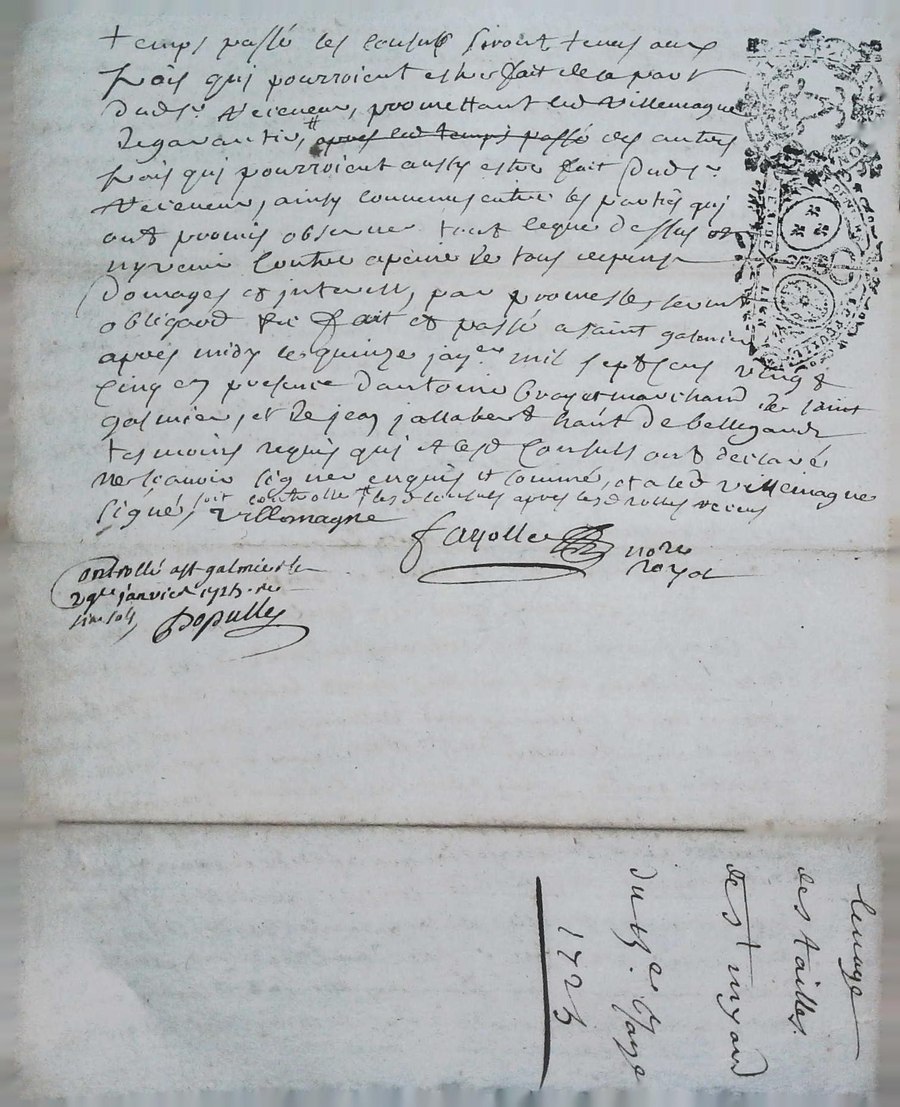 temps passé les consuls seront tenus aux
frais qui pourroient estre fait de la part
dudsr Receveur, promettant led Villemagne
de garantir, # apres led temps passé des autres
frais qui pourroient aussy estre fait dudsr
Receveur, ainsy convenus entre les parties qui
ont promis observer tout ceque dessus et
ny venir contre apeine de tous despens
domages et interest, par promesses serment
obligaons fait et passé a saint galmier
apres midy le quinze jayer mil sept cens vingt
cinq en presence dantoine marchand de saint
galmier, et de jean jallabert de bellegarde
tesmoins requis qui et lesd Consuls ont declaré
ne scavoir signer enquis et sommé, et a led villemagne
signé, soit controllé # lesd consuls apres lesd rolles receus
Villemagne
Fayolle nore
royal
Controllé a st galmier le
janvier 1725.
sols, Populle
GEN. DE LION
louage
des tailles
de st myard
du 15.e Jaye
1725